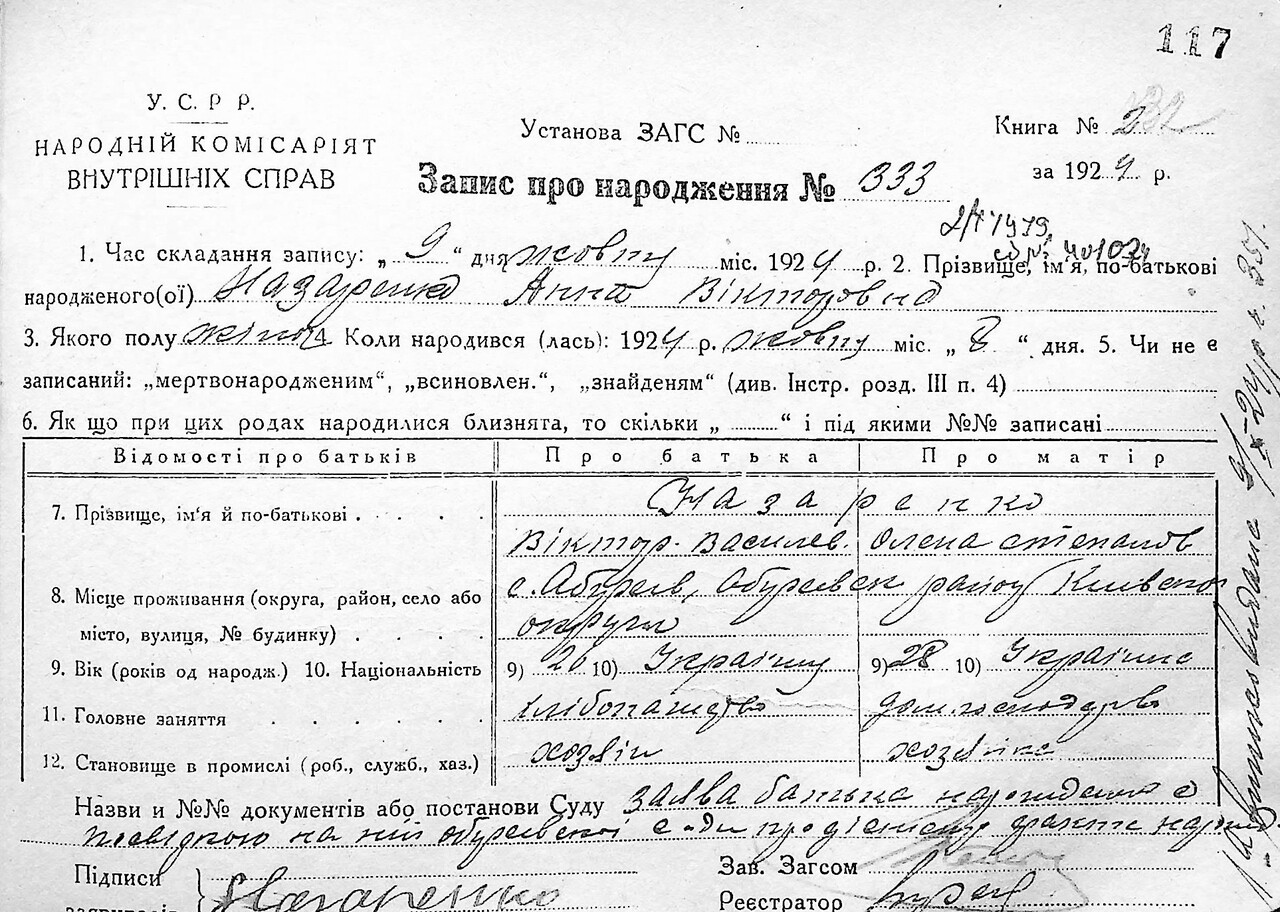 117
У. С. Р Р.
НАРОДНІЙ КОМІСАРІЯТ
ВНУТРІШНІХ СПРАВ
Установа ЗАГС №
Книга № 232
за 1924 р.
Запис про народження № 333
2/IV 1979
1. Час складання запису: „ 9 “ дня жовтня міс. 1924 р. 2. Прізвище, ім'я, по-батькові
народженого(ої) Назаренко Анна Вікторовна
3. Якого полу жіноч. Коли народився (лась): 1924 р. жовтня міс. „ 8 “ дня. 5. Чи не є
записаний: „мертвонародженим“, „всиновлен.“, „знайденям“ (див. Інстр. розд. III п. 4)
6. Як що при цих родах народилися близнята, то скільки „ “ і під якими №№ записані
Відомості про батьків Про батька Про матір
7. Прізвище, ім'я й по-батькові Назаренко
Віктор Василев. Олена Степанов
8. Місце проживання (округа, район, село або с. Обухів, Обухівск району Київської
місто, вулиця, № будинку) округи
9. Вік (років од народж.) 10. Національність 9) 26 10) Українц 9) 28 10) Українка
11. Головне заняття хлібопашество дом. господарство
12. Становище в промислі (роб., служб., хаз.) хозяїн хозяйка
Назви и №№ документів або постанови Суду заява батька народженої є
Підписи
Назаренко
Зав. Загсом
Реєстратор